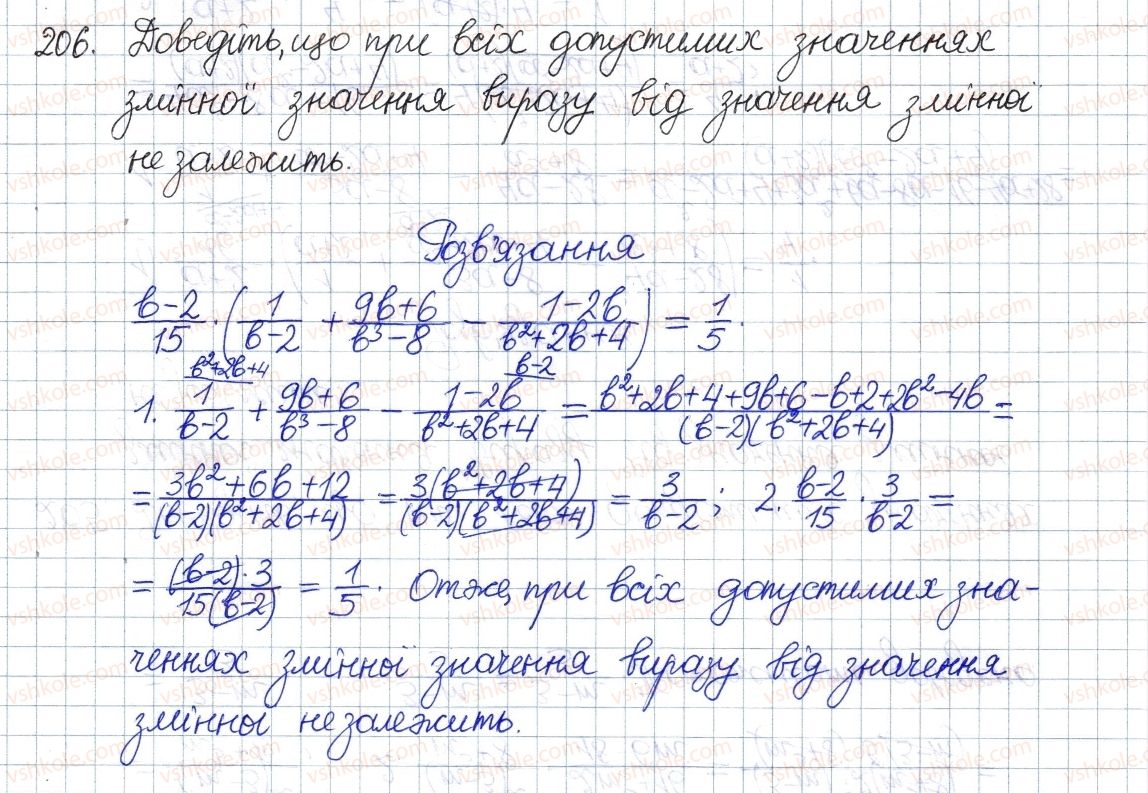 206. Доведіть, що при всіх допустимих значеннях
змінної значення виразу від значення змінної
не залежить.
Розв'язання
в-2/15 · (1/(в-2) + (9в+6)/(в³-8) - (1-2в)/(в²+2в+4)) = 1/5.
в²+2в+4 в-2
1. 1/(в-2) + (9в+6)/(в³-8) - (1-2в)/(в²+2в+4) = (в²+2в+4+9в+6-в+2+2в²-4в)/((в-2)(в²+2в+4)) =
= (3в²+6в+12)/((в-2)(в²+2в+4)) = 3(в²+2в+4)/((в-2)(в²+2в+4)) = 3/(в-2); 2. (в-2)/15 · 3/(в-2) =
= (в-2)·3/(15(в-2)) = 1/5. Отже, при всіх допустимих зна-
ченнях змінної значення виразу від значення
змінної не залежить.